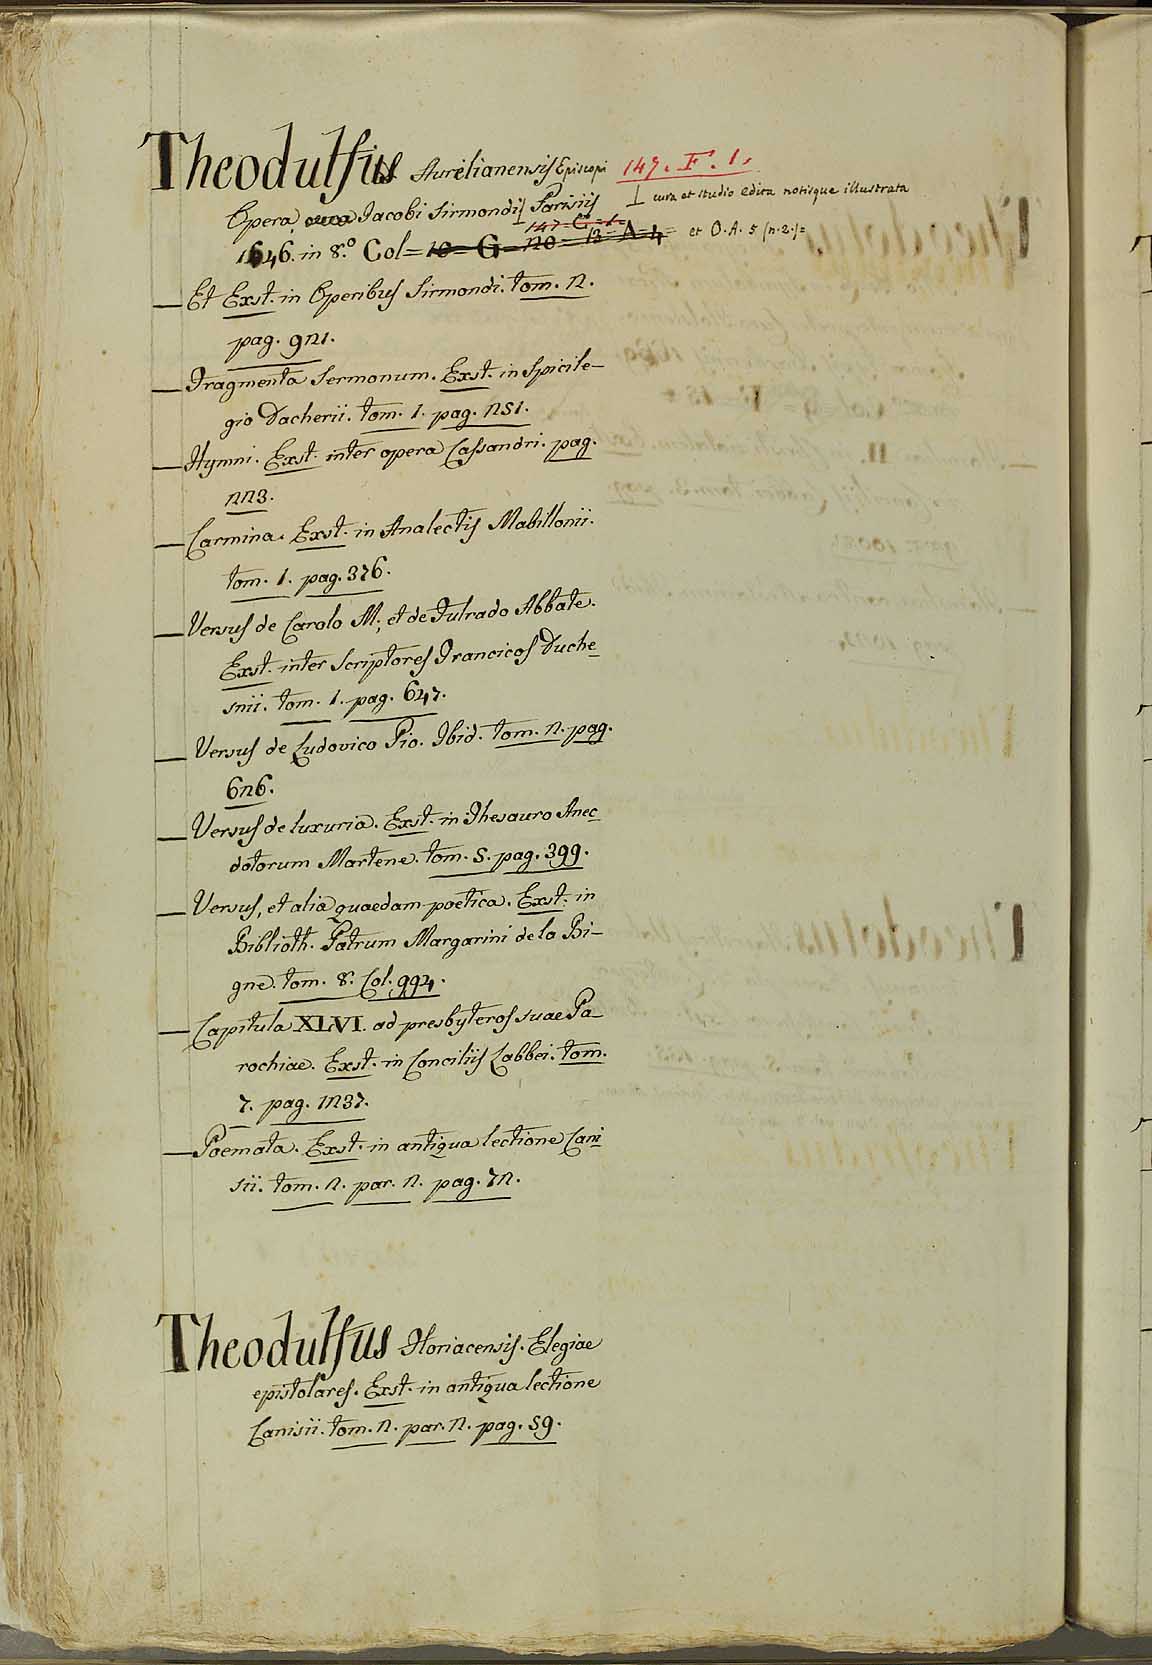 Theodulfus Aurelianensis Episcopi 147. F. 1.
Opera, cura Jacobi Sirmondi Parisiis cura et studio edita notisque illustrata
1646. in 8.º Col= 10= G= 20= 147. C=1= 13= A=4= et O. A. 5 (n. 2.)=
— Et Exst. in Operibus Sirmondi. tom. 2.
pag. 921.
— Fragmenta Sermonum. Exst. in Spicile-
gio Dacherii. tom. 1. pag. 251.
— Hymni. Exst. inter opera Cassandri. pag.
223.
— Carmina. Exst. in Analectis Mabillonii.
tom. 1. pag. 376.
— Versus de Carolo M; et de Fulrado Abbate.
Exst. inter Scriptores Francicos Duche=
snii. tom. 1. pag. 647.
— Versus de Ludovico Pio. Ibid. tom. 2. pag.
626.
— Versus de luxuria. Exst. in Thesauro Anec
dotorum Martene. tom. 5. pag. 399.
— Versus, et alia quaedam poetica. Exst. in
Biblioth. Patrum Margarini de la Bi-
gne. tom. 8. Col. 994.
— Capitula XLVI. ad presbyteros suae Pa-
rochiae. Exst. in Conciliis Labbei. tom.
7. pag. 1237.
— Poemata. Exst. in antiqua lectione Cani
sii. tom. 2. par. 2. pag. 72.
Theodulfus Floriacensis. Elegiae
epistolares. Exst. in antiqua lectione
Canisii. tom. 2. par. 2. pag. 59.